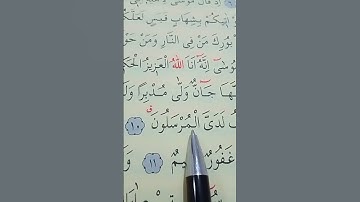 اِذْ قَالَ مُوسٰى
بِشِهَابٍ قَبَسٍ لَعَلَّكُمْ
بُورِكَ مَنْ فِي النَّارِ وَمَنْ حَوْ
وسٰٓى اِنَّهُٓ اَنَا اللّٰهُ الْعَزِيزُ الْحَك
هَا جَٓانٌّ وَلّٰى مُدْبِرًا وَلَ
فُ لَدَيَّ الْمُرْسَلُونَ ۗ ﴿١٠﴾
غَفُورٌ يمٌ ﴿١١﴾ وَ